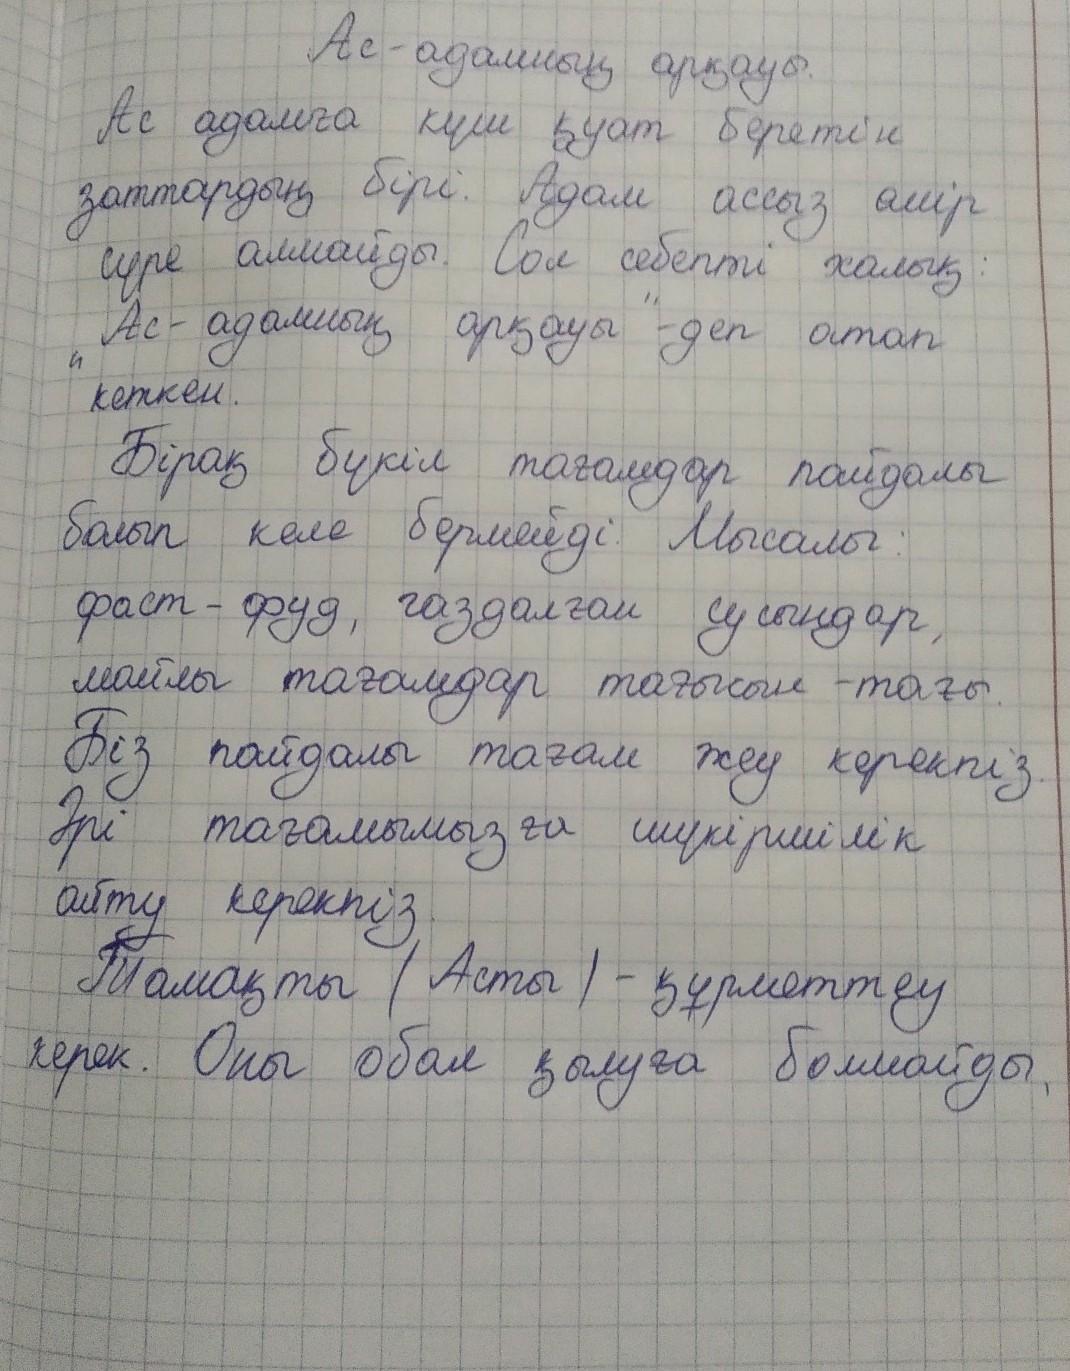 Ас-адамның арқауы.
Ас адамға күш қуат беретін
заттардың бірі. Адам ассыз өмір
сүре алмайды. Сол себепті халық:
"Ас-адамның арқауы"-деп атап
кеткен.
Бірақ бүкіл тағамдар пайдалы
болып келе бермейді. Мысалы:
фаст-фуд, газдалған сусындар,
майлы тағамдар тағысын-тағы.
Біз пайдалы тағам жеу керекпіз.
Әрі тағамымызға шүкіршілік
айту керекпіз.
Тамақты (Асты)-құрметтеу
керек. Оны обал қылуға болмайды.